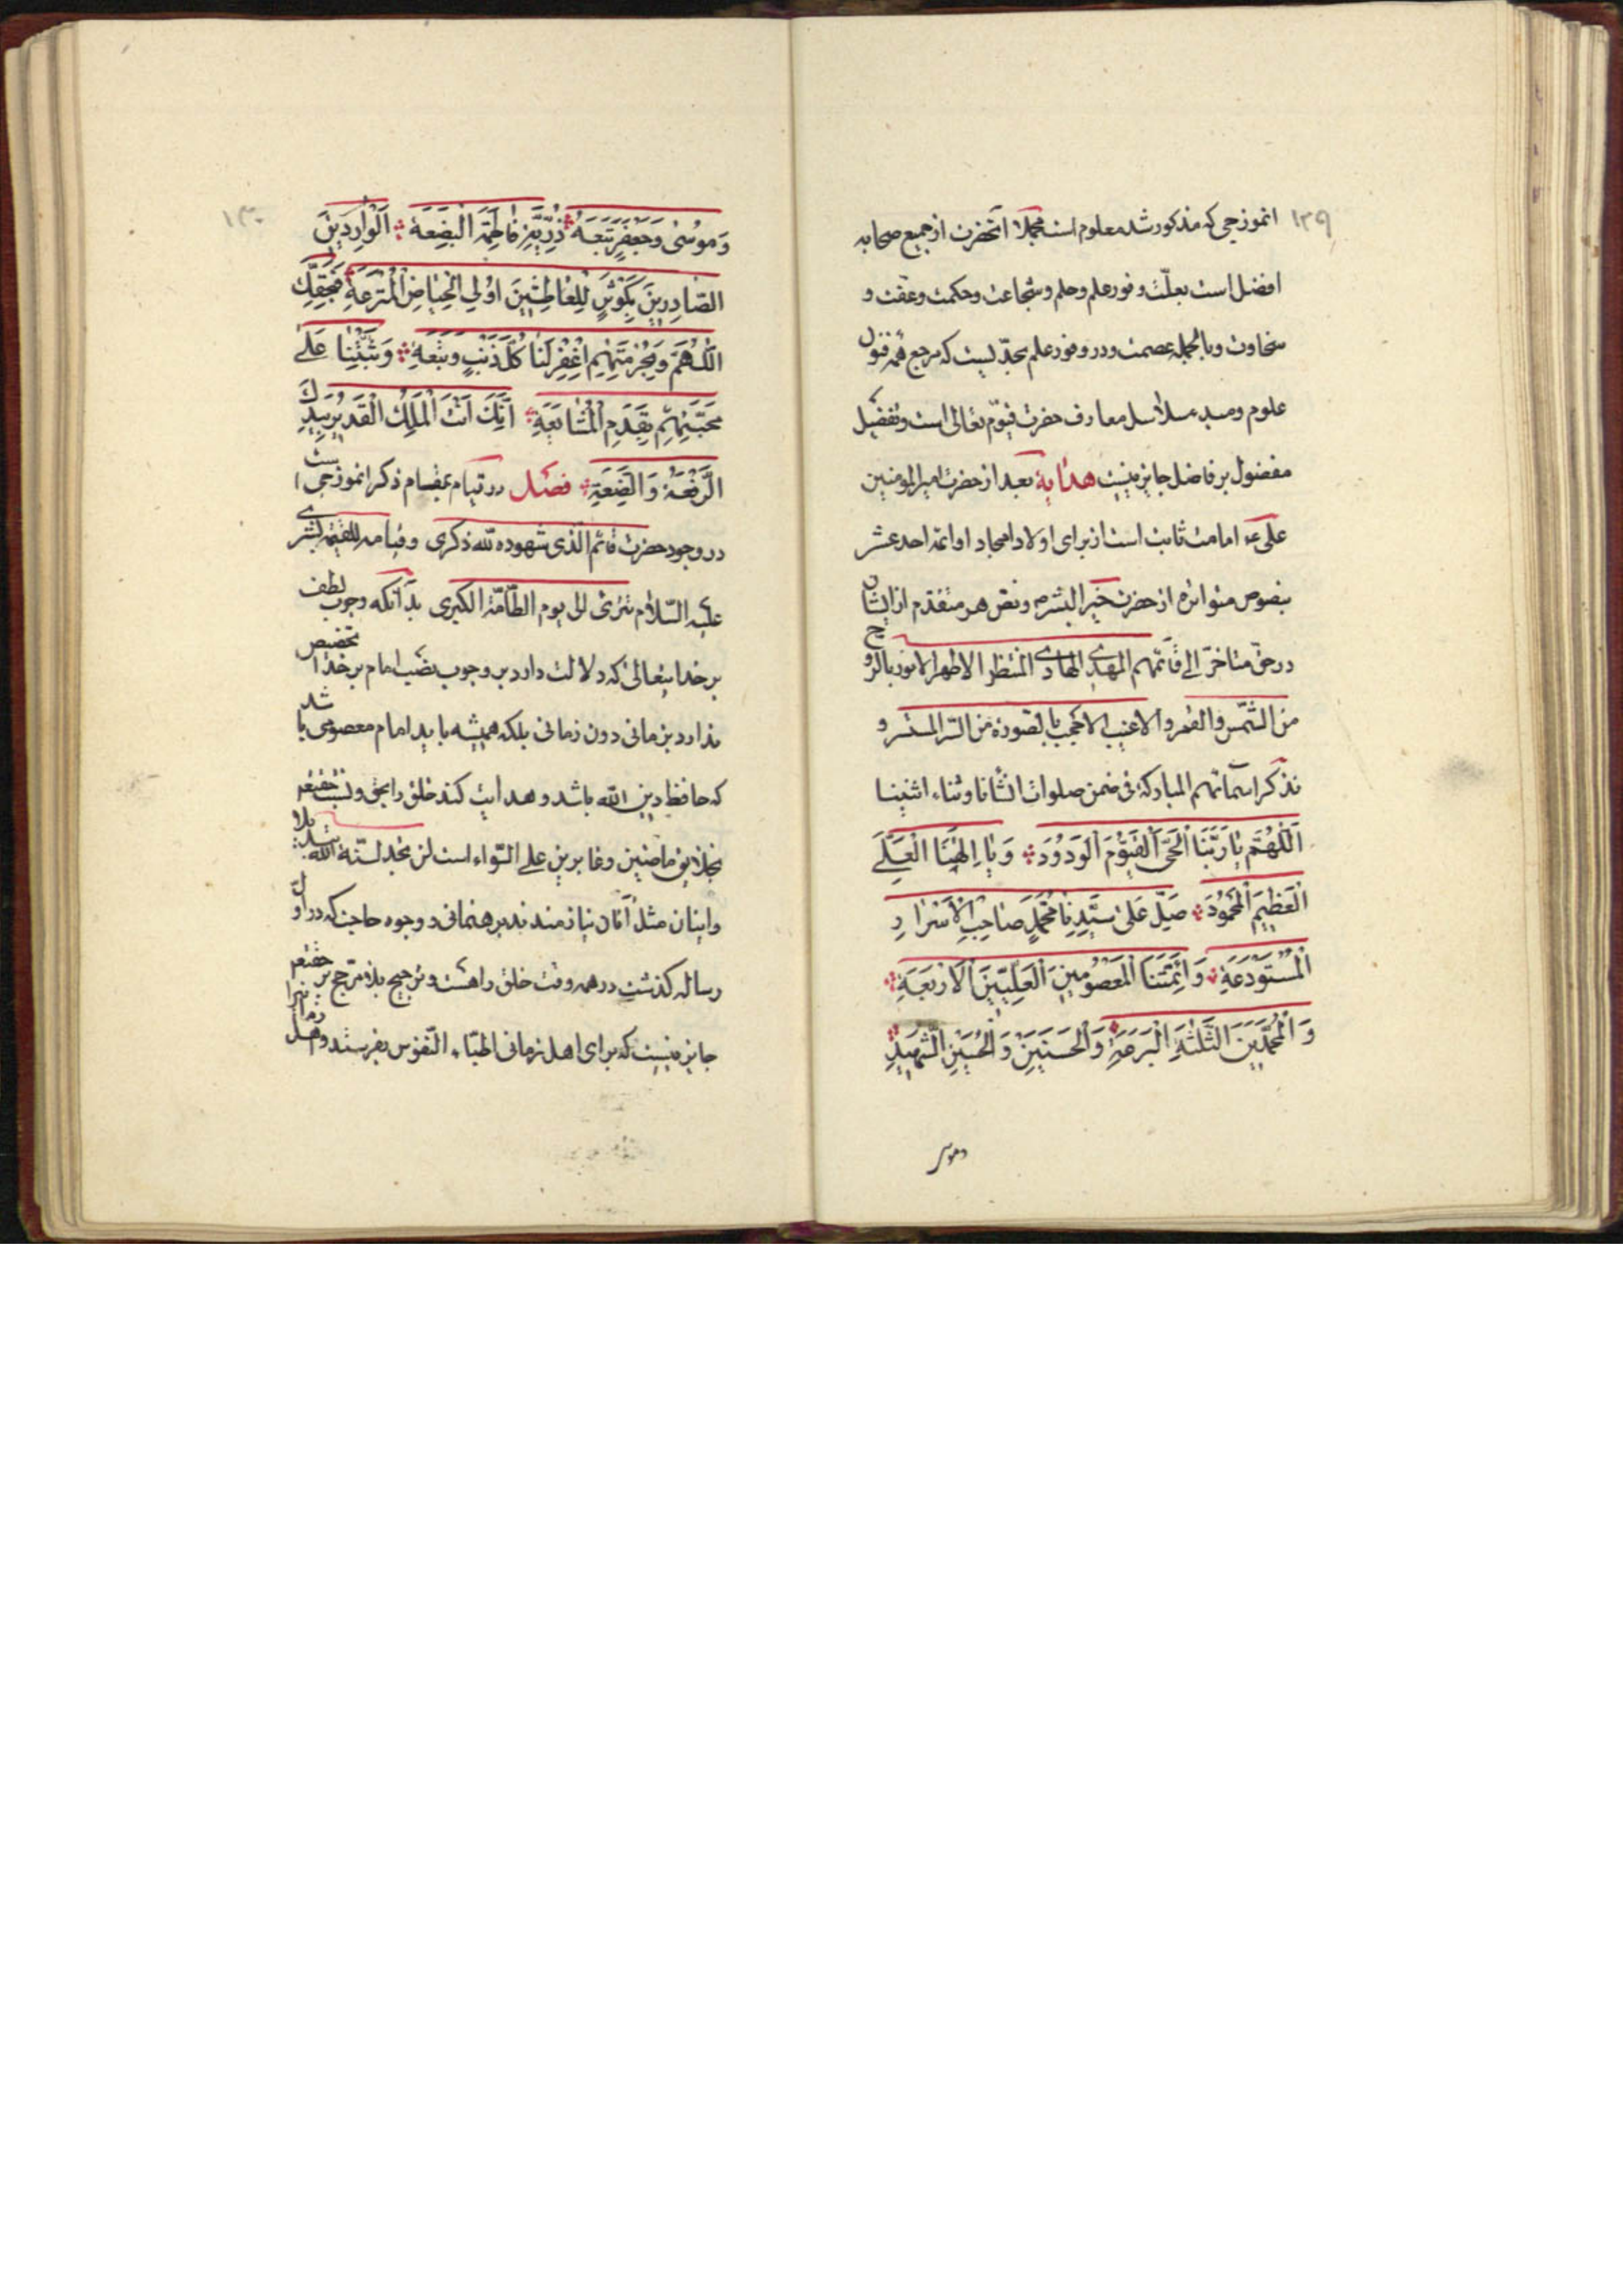 ۱۲۹
انموزجی که مذکور شد معلوم است مجملا آنحضرت از جمیع صحابه
افضل است بعلّت وفور علم و حلم و شجاعت و حکمت و عفّت و
سخاوت و بالجمله عصمت و در وفور علم بحدّیست که مرجع همه فنون
علوم و مبدء سلاسل معارف حضرت قیّوم تعالی است و تفضیل
مفضول بر فاضل جایز نیست هدایة بعد از حضرت امیر المومنین
علی ع امامت ثابت است از برای اولاد امجاد او ائمه احد عشر
بنصوص متواتره از حضرت خیر البشر ص و نص هر متقدم از ایشان
در حق متاخر الی قائمهم المهدی الهادی المنتظر الاطهر الانور بالروح
من الشّمس و القمر و الاغیب الاحجب بالصورة من السّر المستسر و
نذکر اسمائهم المبارکة فی ضمن صلوات انشأنا و ثناء اثنینا
اَللّٰهُمَّ یٰا رَبَّنَا الْحَیَّ الْقَیُّوْمَ الْوَدُوْدَ وَ یٰا اِلٰهَنَا الْعَلِیَّ
الْعَظِیْمَ الْمَحْمُوْدَ صَلِّ عَلٰی سَیِّدِنٰا مُحَمَّدٍ صٰاحِبِ الْاَسْرٰارِ
الْمُسْتَوْدَعَةِ وَ اَئِمَّتِنَا الْمَعْصُوْمِیْنَ الْعَلِیِّیْنَ الْاَرْبَعَةِ
وَ الْمُحَمَّدَیْنَ الثَّلٰثَةِ الْبَرَرَةِ وَ الْحَسَنَیْنِ وَ الْحُسَیْنِ الشَّهِیْدِ
و موسی
۱۳۰
وَ مُوْسٰی وَ جَعْفَرٍ تَبَعَهُ ذُرِّیَّةِ فٰاطِمَةَ الْبَضْعَةِ اَلْوٰارِدِیْنَ
الصّٰادِرِیْنَ بِکَوْثَرٍ لِلْعٰاطِشِیْنَ اُوْلِی الْحِیٰاضِ الْمُتْرَعَةِ فَبِحَقِّکَ
اللّٰهُمَّ وَ بِحُرْمَتِهِمْ اِغْفِرْ لَنٰا کُلَّ ذَنْبٍ وَ تَبِعَةٍ وَ ثَبِّتْنٰا عَلٰی
مَحَبَّتِهِمْ بِقَدَمِ الْمُتٰابَعَةِ اِنَّکَ اَنْتَ الْمَلِکُ الْقَدِیْرُ بِیَدِکَ
الرِّفْعَةُ وَ الضَّعَةِ فصل در قیام بقسام ذکر انموزجی است
در وجود حضرت قائم الذی شهوده لله ذکری و قیامه للقیمة بشری
علیه السّلام تتری الی یوم الطّامّة الکبری بدانکه وجوب لطف
بر خدایتعالی که دلالت دارد بر وجوب نصب امام بر خدا تخصیص
ندارد بزمانی دون زمانی بلکه همیشه باید امام معصومی باشد
که حافظ دین الله باشد و هدایت کند خلق را بحق و نسبت حقتعم
بخلایق ماضین و غابرین علی السّواء است لن تجد لسنّة الله تبدیلا
و اینان مثل آنان نیازمندند برهنمائی و وجوه حاجت که در اوّل
رساله گذشت در همه وقت خلق را هست و ترجیح بلا مرجح بر حقتعم
جایز نیست که برای اهل زمانی اطبّاء النّفوس بفرستد و اهل